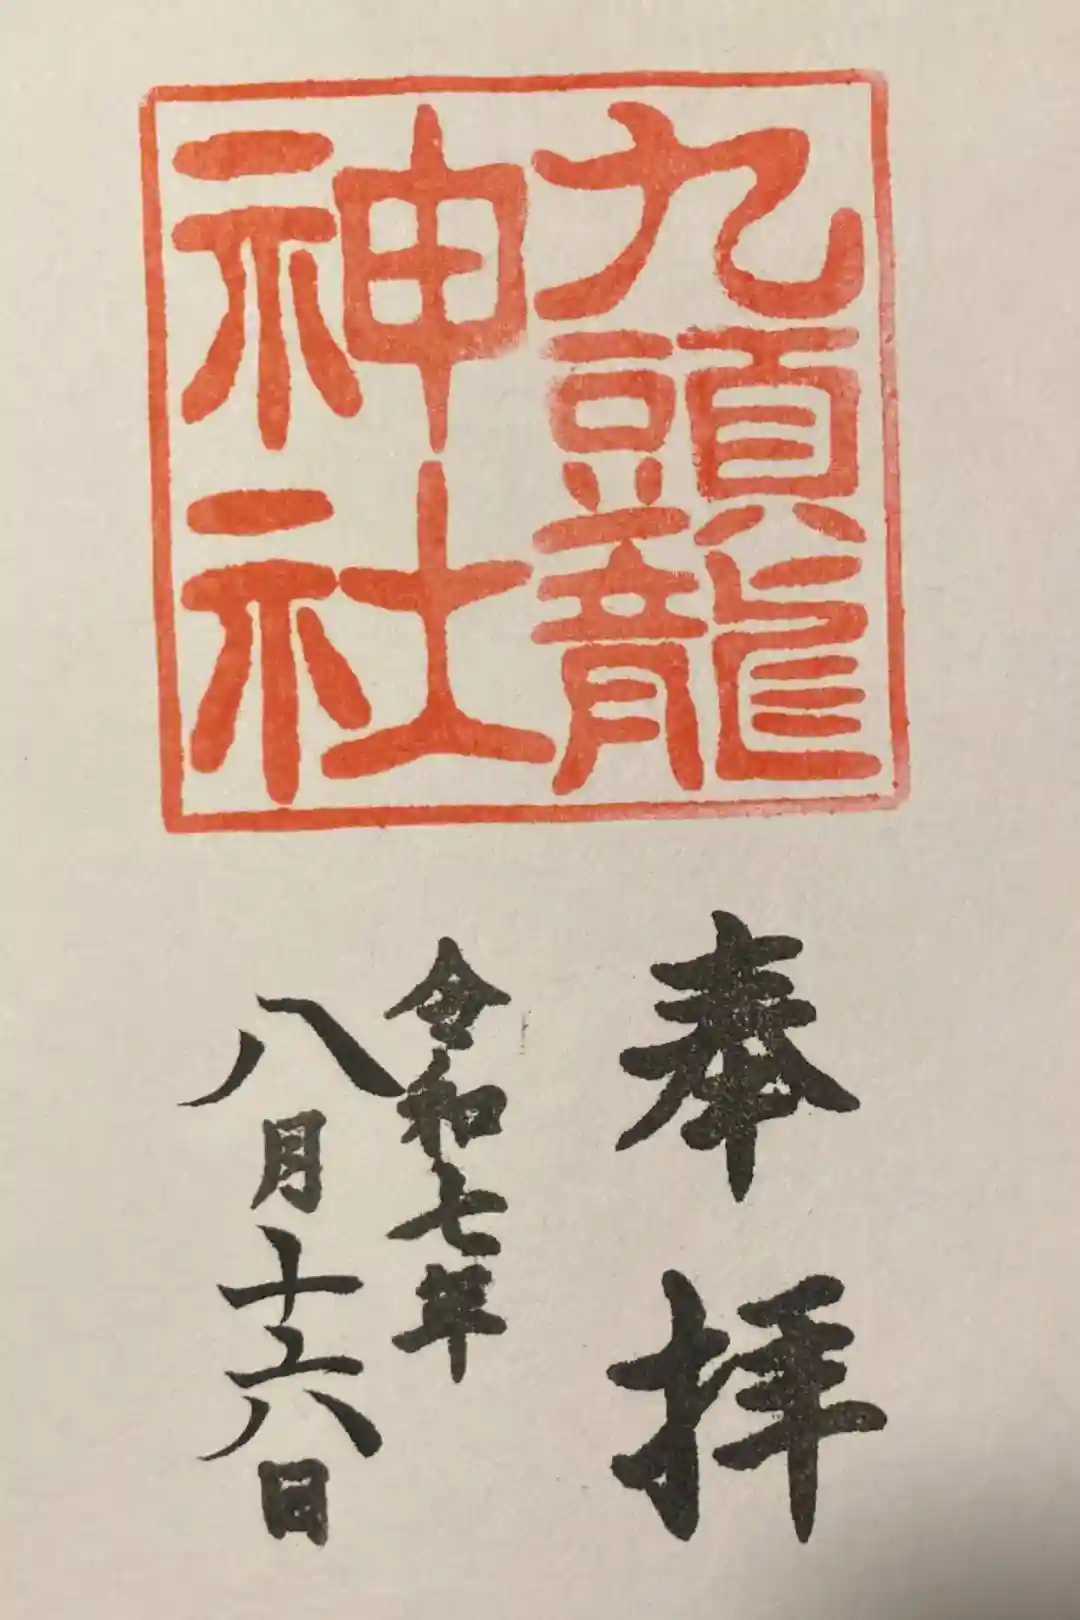 九頭龍
神社
奉拝
令和七年
八月十六日